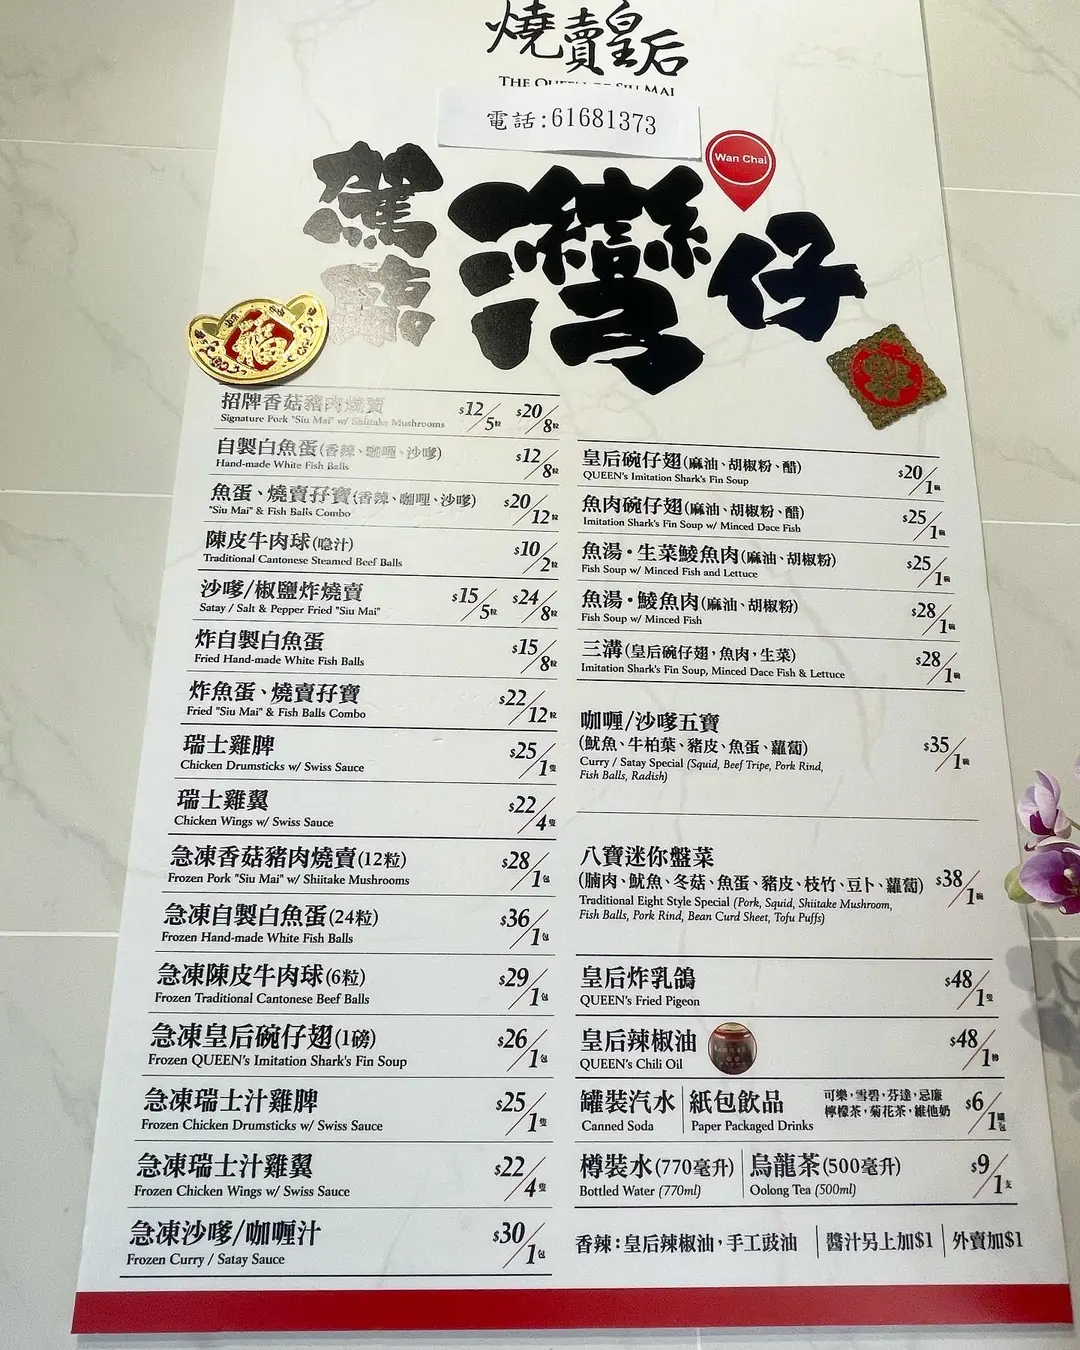 燒賣皇后
THE QUEEN OF SIU MAI
電話:61681373
Wan Chai
駕臨
灣仔
福
招牌香菇豬肉燒賣 $12/5粒 $20/8粒
Signature Pork "Siu Mai" w/ Shiitake Mushrooms
自製白魚蛋(香辣、咖哩、沙嗲) $12/8粒
Hand-made White Fish Balls
魚蛋、燒賣孖寶(香辣、咖哩、沙嗲) $20/12粒
"Siu Mai" & Fish Balls Combo
陳皮牛肉球(喼汁) $10/2粒
Traditional Cantonese Steamed Beef Balls
沙嗲/椒鹽炸燒賣 $15/5粒 $24/8粒
Satay / Salt & Pepper Fried "Siu Mai"
炸自製白魚蛋 $15/8粒
Fried Hand-made White Fish Balls
炸魚蛋、燒賣孖寶 $22/12粒
Fried "Siu Mai" & Fish Balls Combo
瑞士雞脾 $25/1隻
Chicken Drumsticks w/ Swiss Sauce
瑞士雞翼 $22/4隻
Chicken Wings w/ Swiss Sauce
急凍香菇豬肉燒賣(12粒) $28/1包
Frozen Pork "Siu Mai" w/ Shiitake Mushrooms
急凍自製白魚蛋(24粒) $36/1包
Frozen Hand-made White Fish Balls
急凍陳皮牛肉球(6粒) $29/1包
Frozen Traditional Cantonese Beef Balls
急凍皇后碗仔翅(1磅) $26/1包
Frozen QUEEN's Imitation Shark's Fin Soup
急凍瑞士汁雞脾 $25/1隻
Frozen Chicken Drumsticks w/ Swiss Sauce
急凍瑞士汁雞翼 $22/4隻
Frozen Chicken Wings w/ Swiss Sauce
急凍沙嗲/咖喱汁 $30/1包
Frozen Curry / Satay Sauce
皇后碗仔翅(麻油、胡椒粉、醋) $20/1碗
QUEEN's Imitation Shark's Fin Soup
魚肉碗仔翅(麻油、胡椒粉、醋) $25/1碗
Imitation Shark's Fin Soup w/ Minced Dace Fish
魚湯・生菜鯪魚肉(麻油、胡椒粉) $25/1碗
Fish Soup w/ Minced Fish and Lettuce
魚湯・鯪魚肉(麻油、胡椒粉) $28/1碗
Fish Soup w/ Minced Fish
三溝(皇后碗仔翅，魚肉，生菜) $28/1碗
Imitation Shark's Fin Soup, Minced Dace Fish & Lettuce
咖喱/沙嗲五寶
(魷魚、牛柏葉、豬皮、魚蛋、蘿蔔) $35/1碗
Curry / Satay Special (Squid, Beef Tripe, Pork Rind,
Fish Balls, Radish)
八寶迷你盤菜
(腩肉、魷魚、冬菇、魚蛋、豬皮、枝竹、豆卜、蘿蔔) $38/1碗
Traditional Eight Style Special (Pork, Squid, Shiitake Mushroom,
Fish Balls, Pork Rind, Bean Curd Sheet, Tofu Puffs)
皇后炸乳鴿 $48/1隻
QUEEN's Fried Pigeon
皇后辣椒油 $48/1樽
QUEEN's Chili Oil
罐裝汽水 紙包飲品 可樂，雪碧，芬達，忌廉 $6/1罐包
檸檬茶，菊花茶，維他奶
Canned Soda Paper Packaged Drinks
樽裝水(770毫升) 烏龍茶(500毫升) $9/1支
Bottled Water (770ml) Oolong Tea (500ml)
香辣：皇后辣椒油，手工豉油 醬汁另上加$1 外賣加$1